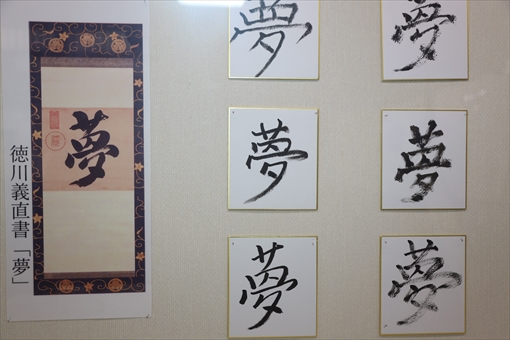 徳川義直書「夢」
夢
夢
夢
夢
夢
夢
夢